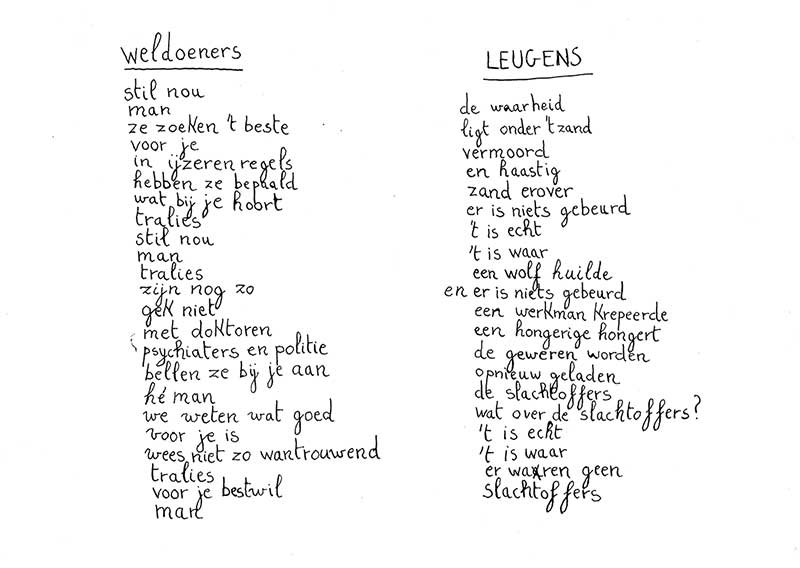 weldoeners
stil nou
man
ze zoeken 't beste
voor je
in ijzeren regels
hebben ze bepaald
wat bij je hoort
tralies
stil nou
man
tralies
zijn nog zo
gek niet
met doktoren
psychiaters en politie
bellen ze bij je aan
hé man
we weten wat goed
voor je is
wees niet zo wantrouwend
tralies
voor je bestwil
man
LEUGENS
de waarheid
ligt onder 't zand
vermoord
en haastig
zand erover
er is niets gebeurd
't is echt
't is waar
een wolf huilde
en er is niets gebeurd
een werkman krepeerde
een hongerige hongert
de geweren worden
opnieuw geladen
de slachtoffers
wat over de slachtoffers?
't is echt
't is waar
er waren geen
slachtoffers